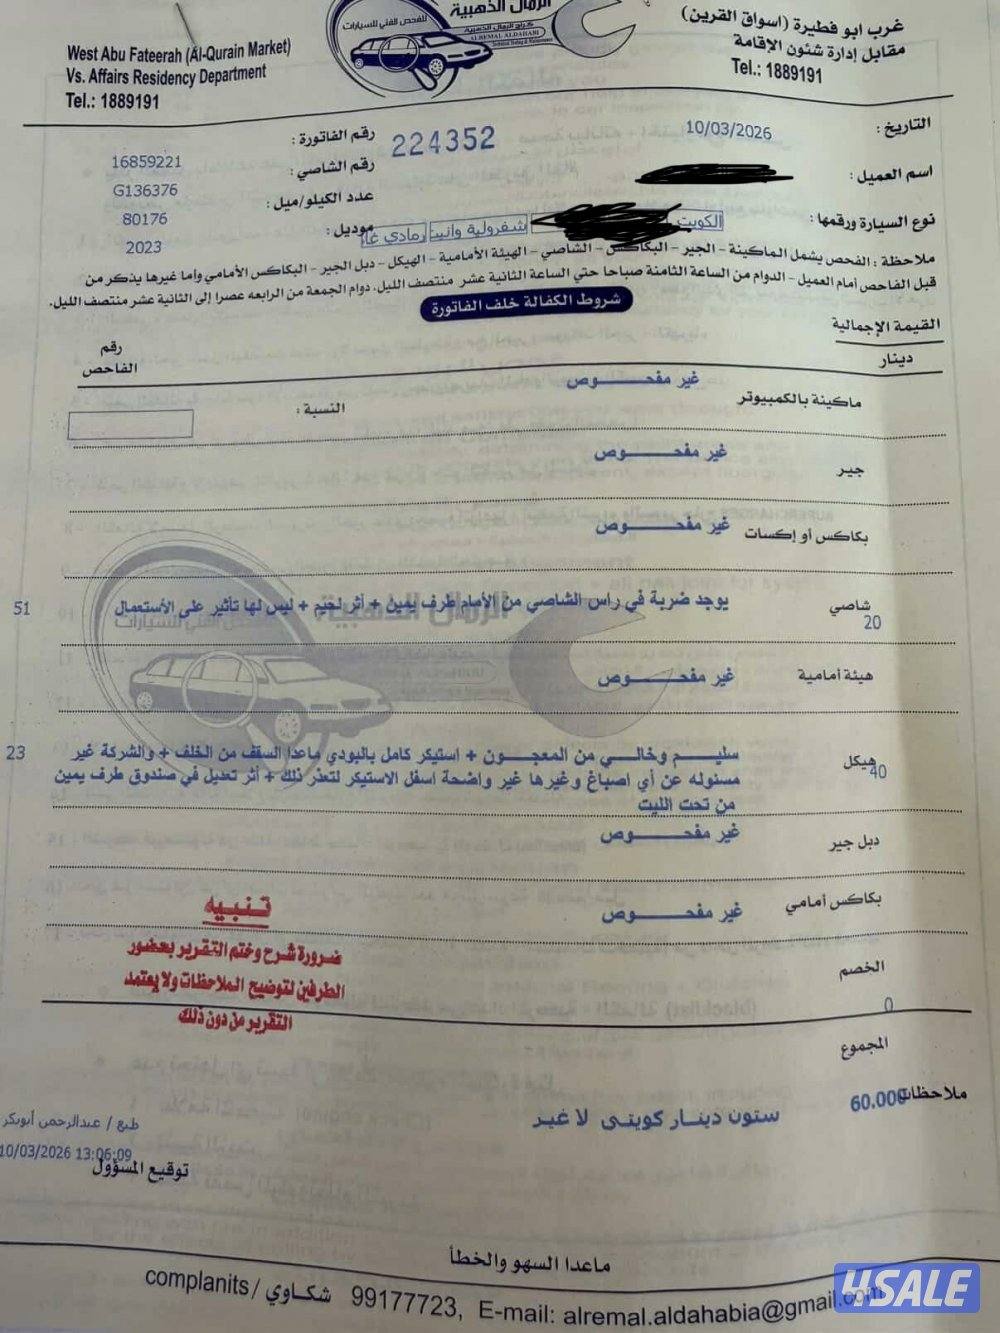 الرمال الذهبية
للفحص الفني للسيارات
كراج الرمال الذهبية
ALREMAL ALDAHABI
Technical Testing & Maintenance
West Abu Fateerah (Al-Qurain Market)
Vs. Affairs Residency Department
Tel.: 1889191
غرب ابو فطيرة (اسواق القرين)
مقابل إدارة شئون الإقامة
Tel.: 1889191
التاريخ : 10/03/2026
رقم الفاتورة : 224352
اسم العميل :
رقم الشاصي : 16859221
G136376
نوع السيارة ورقمها : الكويت شفرولية وانيت رمادي غا
عدد الكيلو/ميل : 80176
موديل : 2023
ملاحظة : الفحص يشمل الماكينة - الجير - البكاكس - الشاصي - الهيئة الأمامية - الهيكل - دبل الجير - البكاكس الأمامي واما غيرها يذكر من
قبل الفاحص أمام العميل - الدوام من الساعة الثامنة صباحا حتي الساعة الثانية عشر منتصف الليل. دوام الجمعة من الرابعه عصرا إلى الثانية عشر منتصف الليل.
شروط الكفالة خلف الفاتورة
القيمة الإجمالية
دينار
رقم
الفاحص
ماكينة بالكمبيوتر غير مفحـــوص
النسبة :
جير غير مفحـــوص
بكاكس أو إكسات غير مفحـــوص
شاصي 20 يوجد ضربة في راس الشاصي من الأمام طرف يمين + أثر لحيم + ليس لها تأثير على الأستعمال 51
هيئة أمامية غير مفحـــوص
هيكل 40 سليـــم وخالـــي من المعجـــون + استيكر كامل بالبودي ماعدا السقف من الخلف + والشركة غير 23
مسئوله عن أي اصباغ وغيرها غير واضحة اسفل الاستيكر لتعذر ذلك + أثر تعديل في صندوق طرف يمين
من تحت الليت
دبل جير غير مفحـــوص
بكاكس أمامي غير مفحـــوص
الخصم 0
تنبيه
ضرورة شرح وختم التقرير بحضور
الطرفين لتوضيح الملاحظات ولا يعتمد
التقرير من دون ذلك
المجموع
ملاحظات 60.000 ستون دينار كويتى لا غير
طبع / عبدالرحمن أبوبكر
10/03/2026 13:06:09
توقيع المسؤول
ماعدا السهو والخطأ
complanits / شكاوي 99177723, E-mail: alremal.aldahabia@gmail.com
4SALE